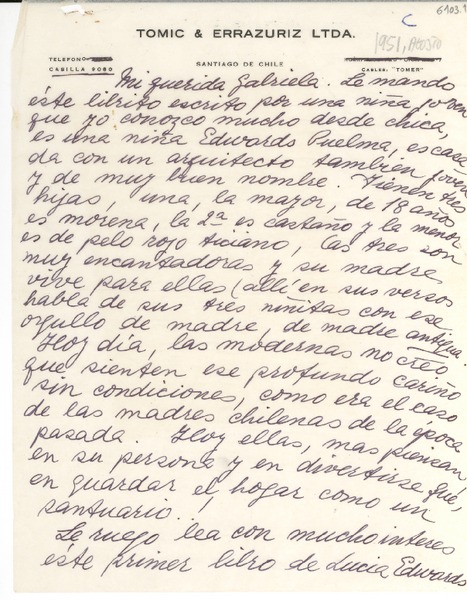 6103.1
C
1951, Agosto
TOMIC & ERRAZURIZ LTDA.
TELEFONO
CASILLA 8080
SANTIAGO DE CHILE
CABLES: "TOMER"
Mi querida Gabriela. Le mando
éste librito escrito por una niña joven
que yo conozco mucho desde chica,
es una niña Edwards Puelma, es casa
da con un arquitecto también joven
y de muy buen nombre. Tienen tres
hijas, una, la mayor, de 18 años
es morena, la 2ª es castaño y la menor
es de pelo rojo ticiano, las tres son
muy encantadoras y su madre
vive para ellas (allí en sus versos
habla de sus tres niñitas con ese
orgullo de madre, de madre antigua.
Hoy día, las modernas no creo
que sienten ese profundo cariño
sin condiciones, como era el caso
de las madres chilenas de la época
pasada. Hoy ellas, mas piensan
en su persona y en divertirse que,
en guardar el hogar como un
santuario.
Le ruego lea con mucho interes
éste primer libro de Lucia Edwards